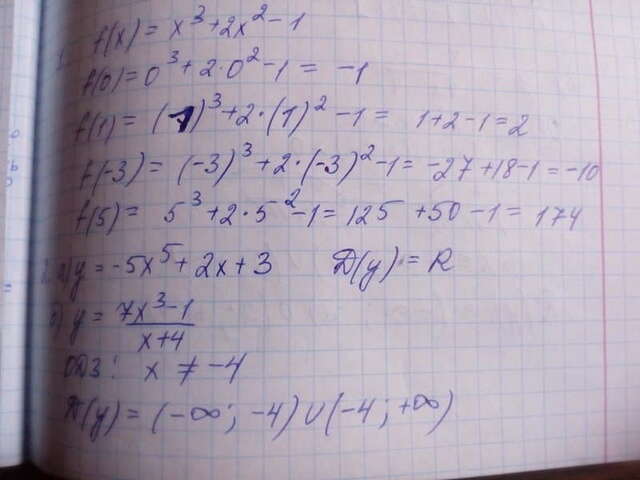 1. f(x) = x³+2x²-1
f(0) = 0³ + 2·0² -1 = -1
f(1) = (1)³+2·(1)² -1 = 1+2-1=2
f(-3) = (-3)³+2·(-3)²-1= -27+18-1=-10
f(5) = 5³+2·5²-1= 125 +50 -1= 174
2. а) y = -5x⁵+ 2x+3 D(y) = R
б) y = (7x³-1)/(x+4)
ОДЗ: x ≠ -4
D(y) = (-∞; -4)∪(-4; +∞)